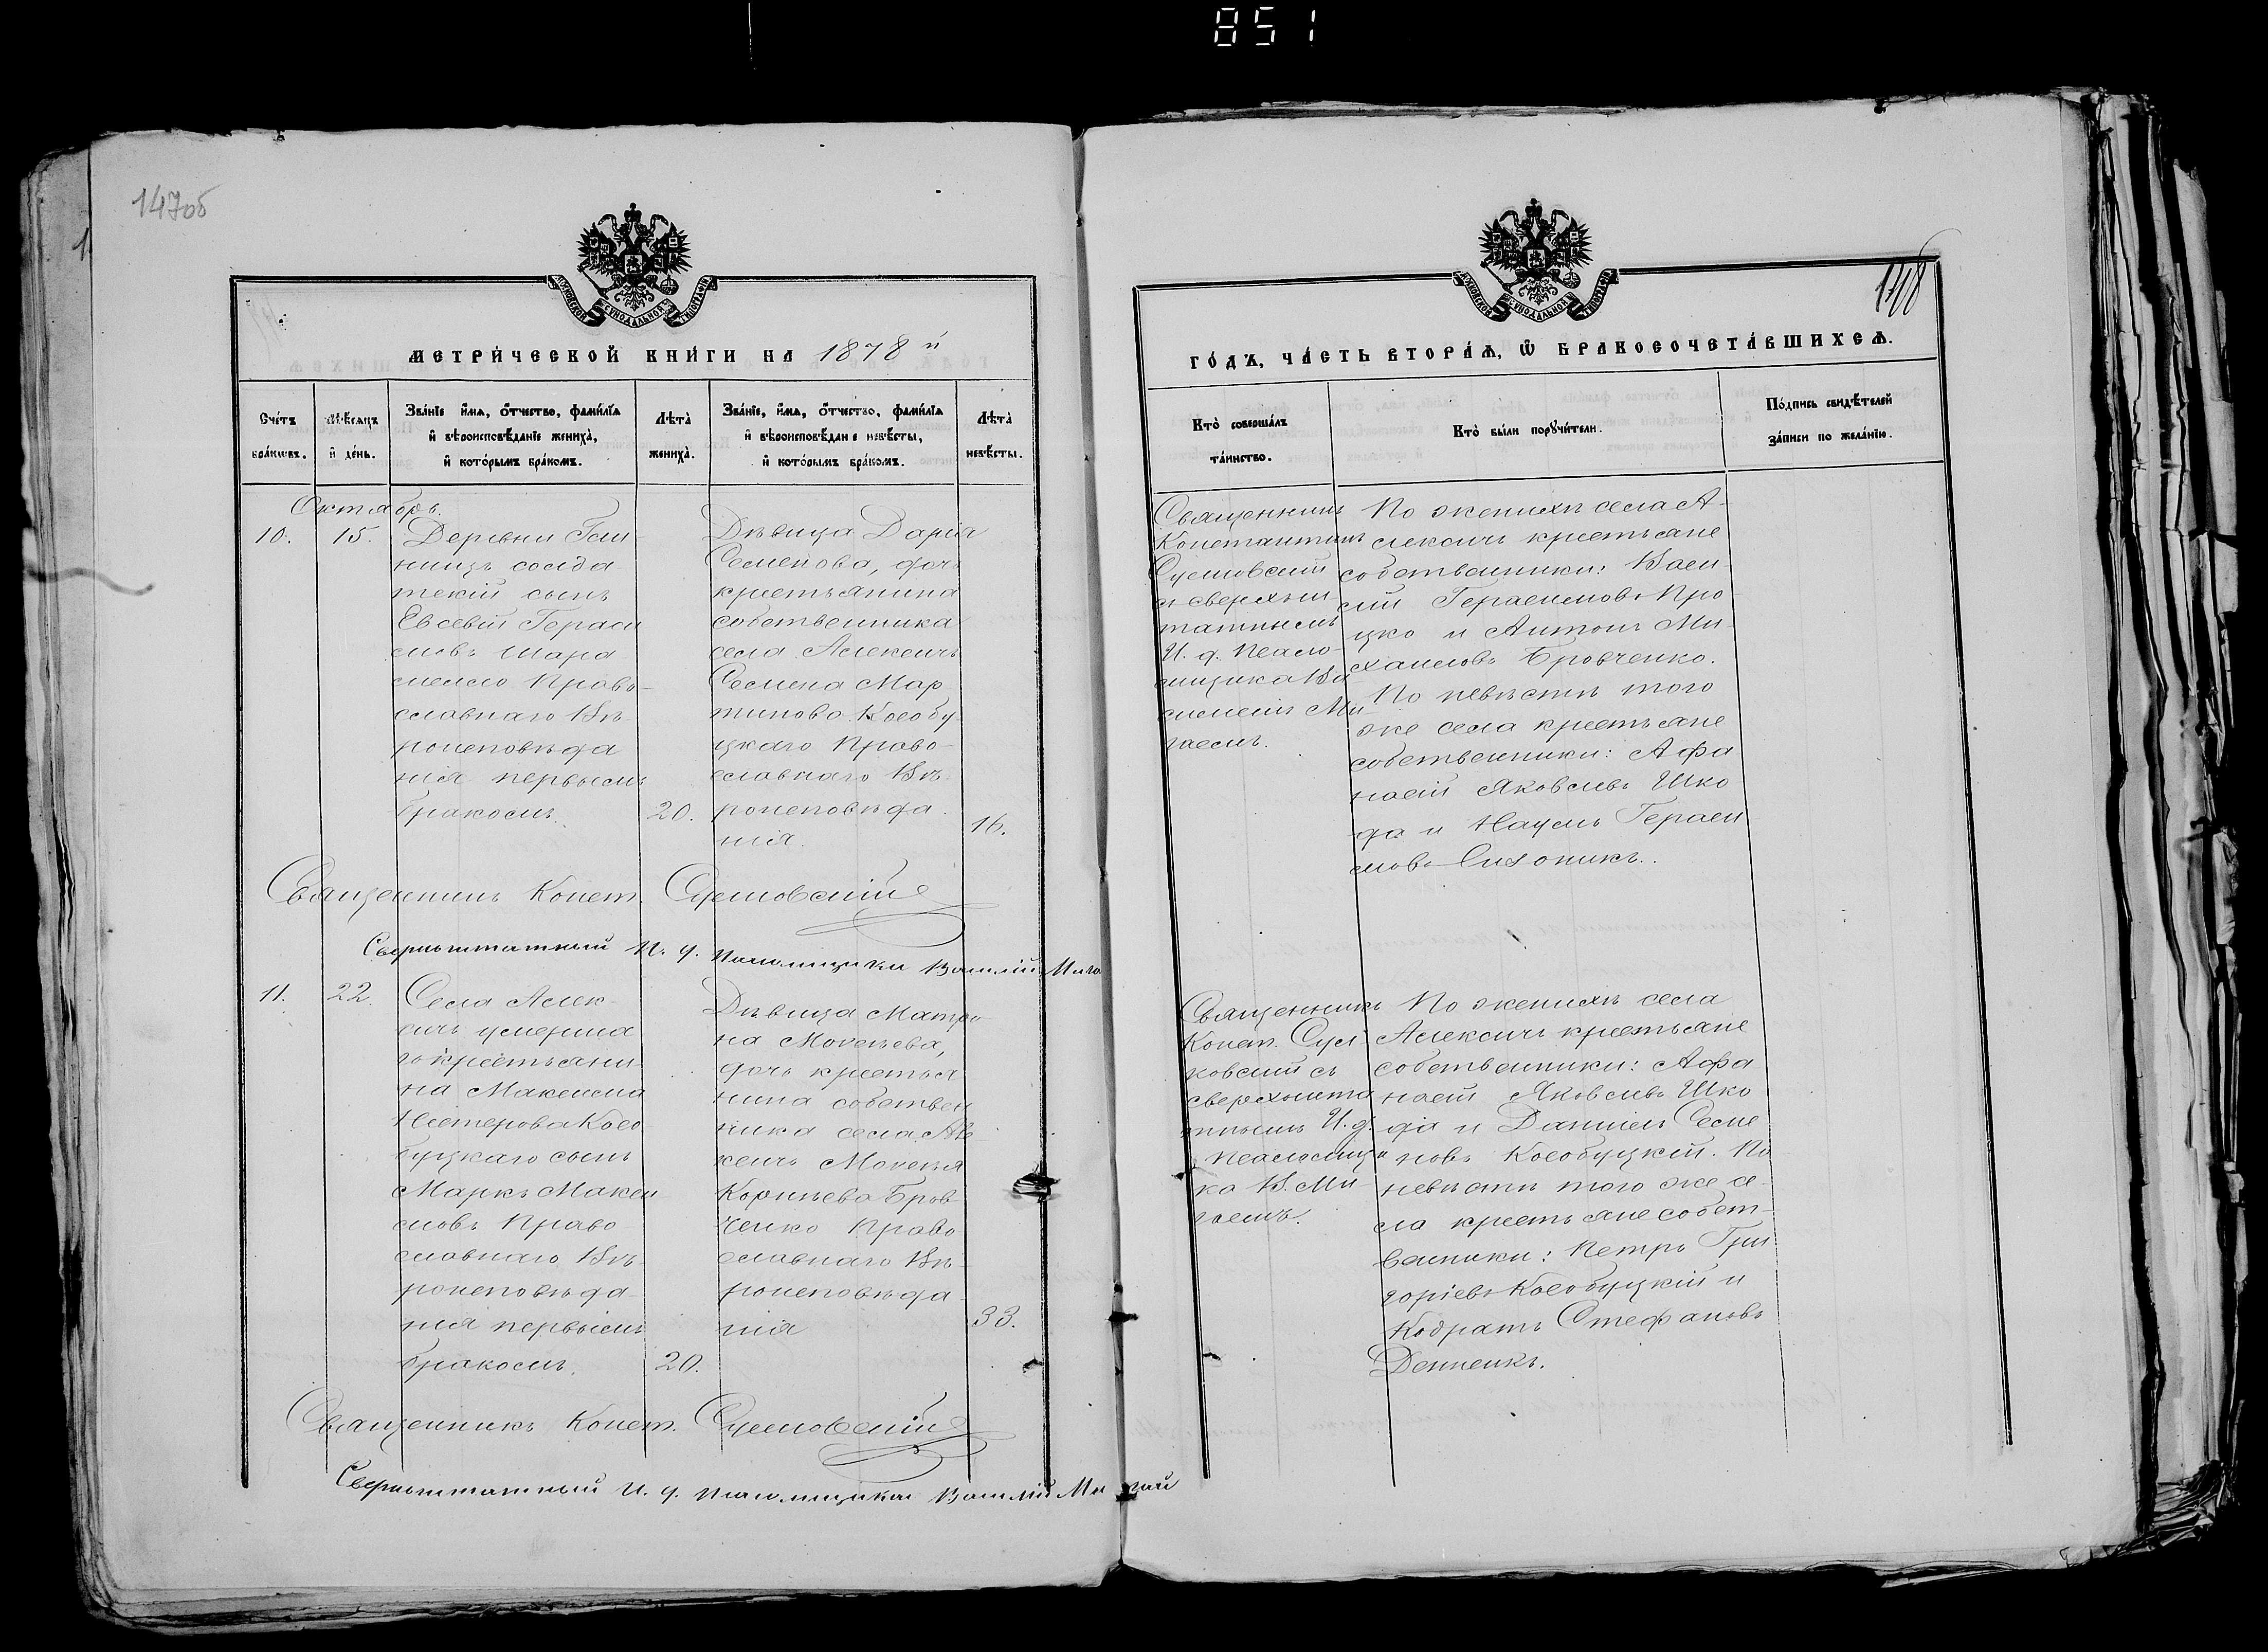 851
147об
МОСКОВСКОЙ СѴНОДАЛЬНОЙ ТИПОГРАФІИ
МЕТРИ́ЧЕСКОЙ КНИ́ГИ НА 1878й
Сче́тъ бра́кѡвъ.
Мѣ́сяцъ и҆ де́нь.
Зва́нїе и҆́мѧ, ѻ҆́тчество, фами́лїѧ и҆ вѣроисповѣ́данїе жениха̀, и҆ кото́рымъ бра́комъ.
Лѣ́та жениха̀.
Зва́нїе, и҆́мѧ, ѻ҆́тчество, фами́лїѧ и҆ вѣроисповѣ́данїе невѣ́сты, и҆ кото́рымъ бра́комъ.
Лѣ́та невѣ́сты.
Октябрь.
10.
15.
Деревни
солда
тскій сынъ
Евсевій Гераси
мовъ Шара
Право-
славнаго Вѣ-
роисповѣда
нія первымъ
бракомъ.
20.
Дѣвица Дарія
Семенова, дочь
крестьянина
собственника
села Алексичъ
Семена Мар
тинова Кособу
цкаго Право-
славнаго Вѣ-
роисповѣда
нія.
16.
Священникъ Конст. Сулковскій
Сверхштатный И. д. псаломщика Василій Мига
11.
22.
Села Алек-
сичъ умерша
го крестьяни
на Максима
Нестерова Косо
буцкаго сынъ
Маркъ Макси
мовъ Право
славнаго Вѣ-
роисповѣда
нія первымъ
бракомъ.
20.
Дѣвица Матро
на Мокіева,
дочь крестья
нина собствен
ника села Але
ксичъ Мокія
Корніева Бров
ченко Право
славнаго Вѣ
роисповѣда
нія
33.
Священникъ Конст. Сулковскій
Сверхштатный И. д. псаломщика Василій Мигай
148
МОСКОВСКОЙ СѴНОДАЛЬНОЙ ТИПОГРАФІИ
ГО́ДЪ, ЧА́СТЬ ВТОРА́Ѧ, Ѡ҆ БРАКОСОЧЕТА́ВШИХСѦ.
Кто̀ соверша́лъ та́инство.
Кто̀ бы́ли порꙋчи́тели.
По́дпись свидѣ́телей за́писи по жела́нїю.
Священникъ
Константинъ
Сулковскій
съ сверхшта
татнымъ
И. д. псало-
мщика Ва
силіемъ Ми
гаемъ.
По женихѣ села А-
лексичъ крестьяне
собственники: Васи-
лій Герасимовъ Про-
цко и Антонъ Ми-
хаиловъ Бровченко.
По невѣстѣ того
же села крестьяне
собственники: Афа
насій Яковлевъ Шко
да и Наумъ Гераси
мовъ Сихоникъ.
Священникъ
Конст. Сул
ковскій съ
сверхшта
тнымъ И. д.
псаломщи
ка В. Ми-
гаемъ.
По женихѣ села
Алексичъ крестьяне
собственники: Афа
насій Яковлевъ Шко
да и Даніилъ Семе
новъ Кособуцкій. По
невѣстѣ того же се-
ла крестьяне собст-
венники: Петръ Гри
горіевъ Кособуцкій и
Кодратъ Стефановъ